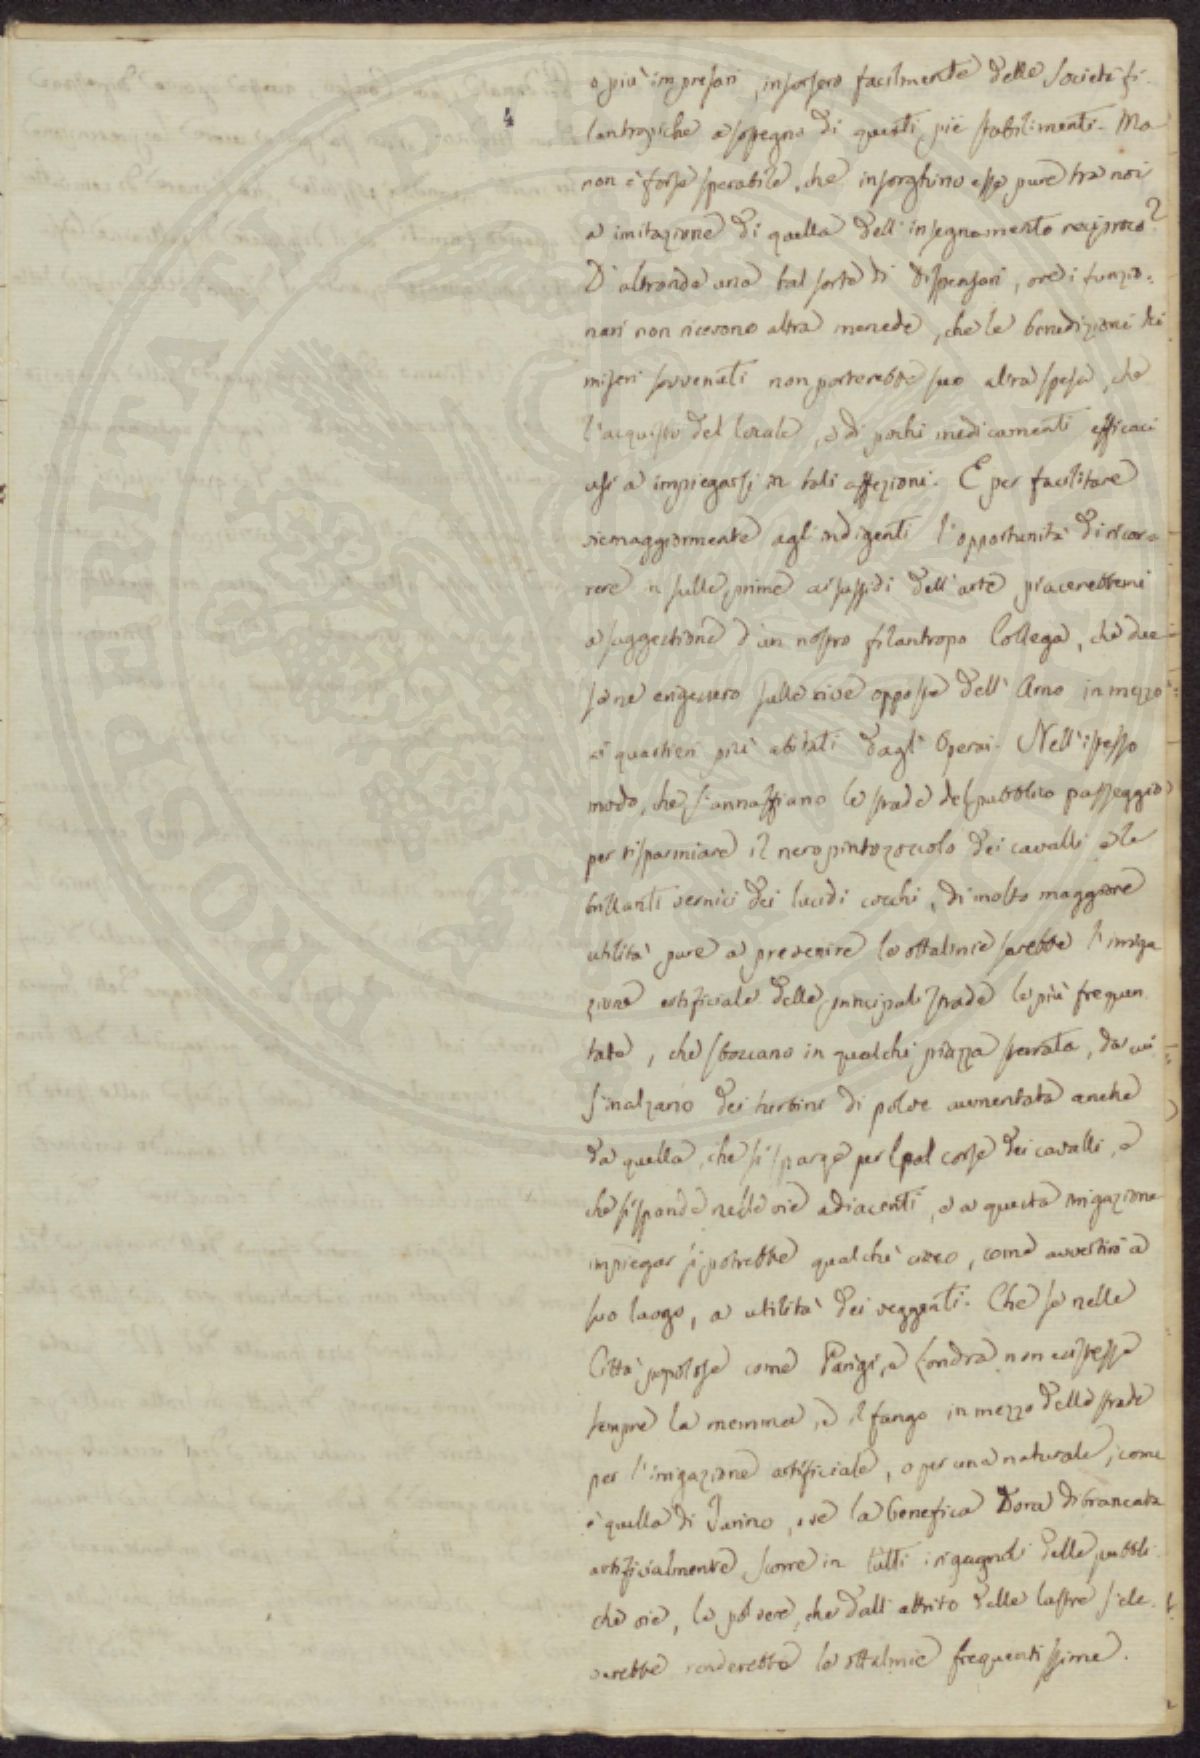 4
o più impresarj, insorsero facilmente delle Società fi-
lantropiche a sostegno di questi pii stabilimenti. Ma
non è forse sperabile, che insorghino esse pure tra noi
a imitazione di quella dell'insegnamento reciproco?
D'altronde una tal sorta di dispensarj, ove i funzio-
narj non ricevono altra mercede, che le benedizioni dei
miseri sovvenuti non porterebbe seco altra spesa, che
l'acquisto del locale, e di pochi medicamenti efficaci
usi a impiegarsi in tali affezioni. E per facilitare
viemaggiormente agl'indigenti l'opportunità di ricor-
rere in sulle prime ai sussidi dell'arte piacerebbemi
a suggestione d'un nostro filantropo Collega, che due
se ne erigessero sulle rive opposte dell'Arno in mezzo
ai quartieri più abitati dagl'Operai. Nell'istesso
modo, che s'annaffiano le strade del pubblico passeggio
per risparmiare il nero pinto zoccolo dei cavalli e le
brillanti vernici dei lucidi cocchi, di molto maggiore
utilità pure a prevenire le ottalmie sarebbe l'irriga
zione artificiale delle principali strade le più frequen
tate, che sboccano in qualche piazza sterrata, da cui
s'inalzano dei turbini di polve aumentata anche
da quella, che si sparge pel corso dei cavalli, e
che si spande nelle vie adiacenti, e a questa irrigazione
impiegar si potrebbe qualche cieco, come avvertirò a
suo luogo, a utilità dei veggenti. Che se nelle
Città popolose come Parigi, e Londra non esistesse
sempre la memma, e il fango in mezzo delle strade
per l'irrigazione artificiale, o per una naturale, come
è quella di Turino, ove la benefica Dora dibrancata
artificialmente scorre in tutti i rigagnoli delle pubbli
che vie, la polvere, che dall'attrito delle lastre s'ele-
varebbe renderebbe le ottalmie frequentissime.
PROSPERITÀ